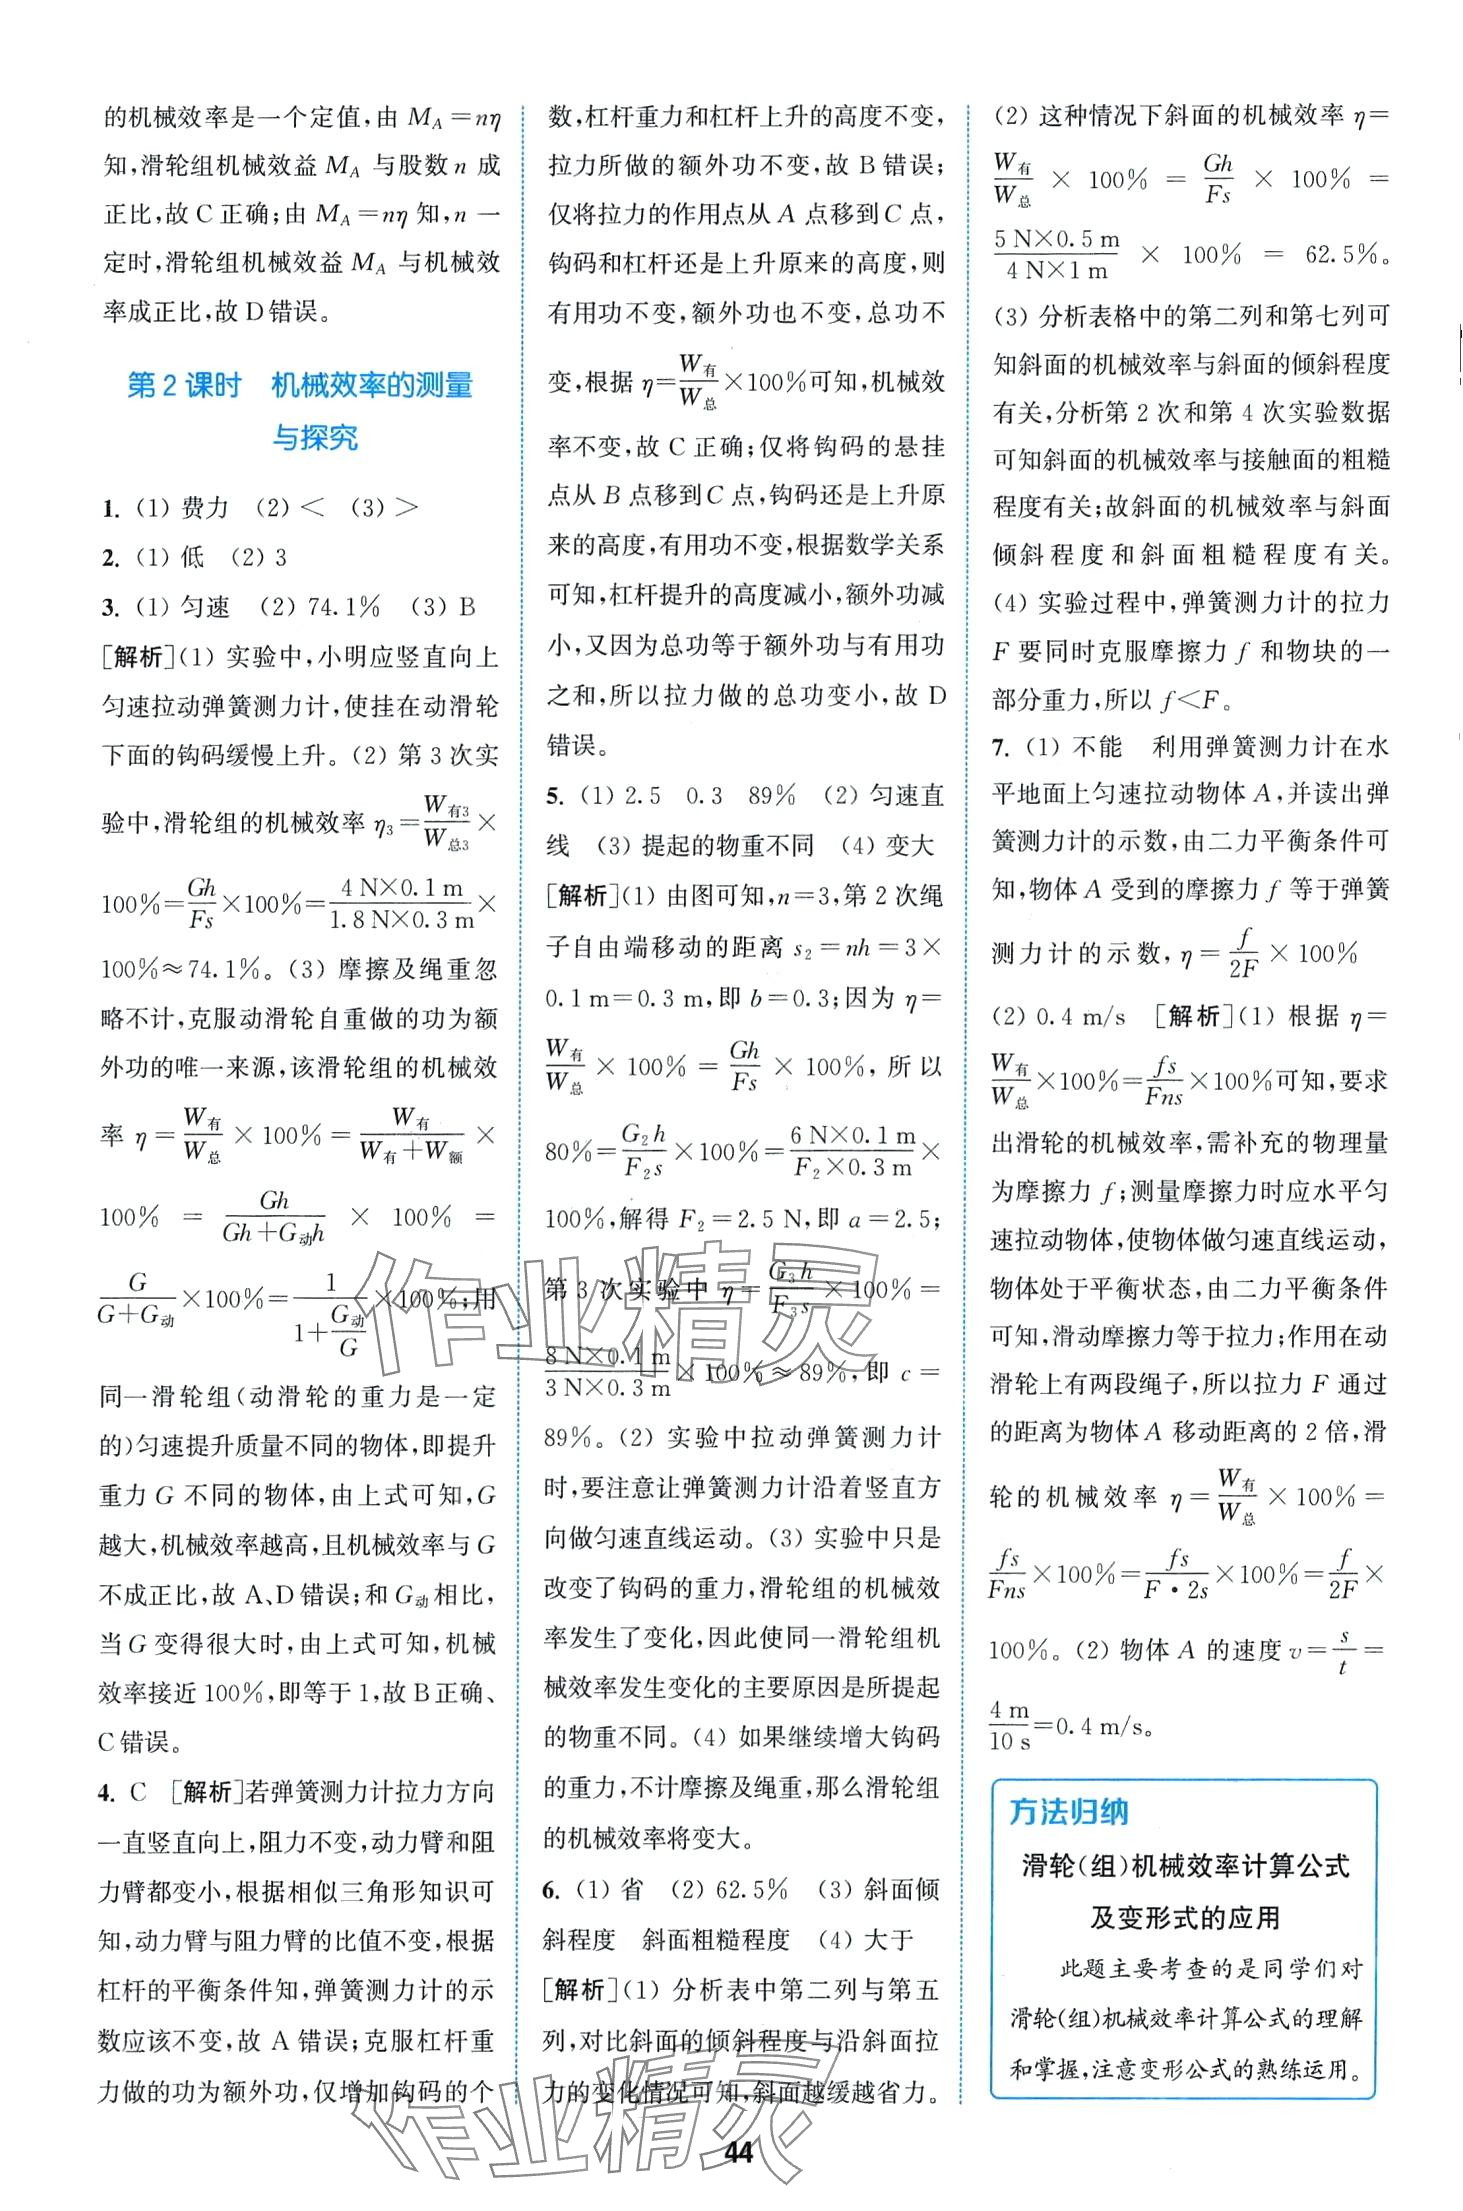 的机械效率是一个定值,由 M_A=nη
知,滑轮组机械效益 M_A 与股数 n 成
正比,故 C 正确;由 M_A=nη 知,n 一
定时,滑轮组机械效益 M_A 与机械效
率成正比,故 D 错误。
第 2 课时　机械效率的测量
与探究
1. (1) 费力　(2) <　(3) >
2. (1) 低　(2) 3
3. (1) 匀速　(2) 74.1%　(3) B
[解析](1) 实验中,小明应竖直向上
匀速拉动弹簧测力计,使挂在动滑轮
下面的钩码缓慢上升。(2) 第 3 次实
验中,滑轮组的机械效率 η₃=W有3/W总3×
100%=Gh/Fs×100%=(4 N×0.1 m)/(1.8 N×0.3 m)×
100%≈74.1%。(3) 摩擦及绳重忽
略不计,克服动滑轮自重做的功为额
外功的唯一来源,该滑轮组的机械效
率 η=W有/W总×100%=W有/(W有+W额)×
100%=Gh/(Gh+G动h)×100%=
G/(G+G动)×100%=1/(1+G动/G)×100%;用
同一滑轮组(动滑轮的重力是一定
的)匀速提升质量不同的物体,即提升
重力 G 不同的物体,由上式可知,G
越大,机械效率越高,且机械效率与 G
不成正比,故 A、D 错误;和 G动 相比,
当 G 变得很大时,由上式可知,机械
效率接近 100%,即等于 1,故 B 正确、
C 错误。
4. C　[解析]若弹簧测力计拉力方向
一直竖直向上,阻力不变,动力臂和阻
力臂都变小,根据相似三角形知识可
知,动力臂与阻力臂的比值不变,根据
杠杆的平衡条件知,弹簧测力计的示
数应该不变,故 A 错误;克服杠杆重
力做的功为额外功,仅增加钩码的个
数,杠杆重力和杠杆上升的高度不变,
拉力所做的额外功不变,故 B 错误;
仅将拉力的作用点从 A 点移到 C 点,
钩码和杠杆还是上升原来的高度,则
有用功不变,额外功也不变,总功不
变,根据 η=W有/W总×100%可知,机械效
率不变,故 C 正确;仅将钩码的悬挂
点从 B 点移到 C 点,钩码还是上升原
来的高度,有用功不变,根据数学关系
可知,杠杆提升的高度减小,额外功减
小,又因为总功等于额外功与有用功
之和,所以拉力做的总功变小,故 D
错误。
5. (1) 2.5　0.3　89%　(2) 匀速直
线　(3) 提起的物重不同　(4) 变大
[解析](1) 由图可知,n=3,第 2 次绳
子自由端移动的距离 s₂=nh=3×
0.1 m=0.3 m,即 b=0.3;因为 η=
W有/W总×100%=Gh/Fs×100%,所以
80%=G₂h/F₂s×100%=(6 N×0.1 m)/(F₂×0.3 m)×
100%,解得 F₂=2.5 N,即 a=2.5;
第 3 次实验中 η=G₃h/F₃s×100%=
(8 N×0.1 m)/(3 N×0.3 m)×100%≈89%,即 c=
89%。(2) 实验中拉动弹簧测力计
时,要注意让弹簧测力计沿着竖直方
向做匀速直线运动。(3) 实验中只是
改变了钩码的重力,滑轮组的机械效
率发生了变化,因此使同一滑轮组机
械效率发生变化的主要原因是所提起
的物重不同。(4) 如果继续增大钩码
的重力,不计摩擦及绳重,那么滑轮组
的机械效率将变大。
6. (1) 省　(2) 62.5%　(3) 斜面倾
斜程度　斜面粗糙程度　(4) 大于
[解析](1) 分析表中第二列与第五
列,对比斜面的倾斜程度与沿斜面拉
力的变化情况可知,斜面越缓越省力。
(2) 这种情况下斜面的机械效率 η=
W有/W总×100%=Gh/Fs×100%=
(5 N×0.5 m)/(4 N×1 m)×100%=62.5%。
(3) 分析表格中的第二列和第七列可
知斜面的机械效率与斜面的倾斜程度
有关,分析第 2 次和第 4 次实验数据
可知斜面的机械效率与接触面的粗糙
程度有关;故斜面的机械效率与斜面
倾斜程度和斜面粗糙程度有关。
(4) 实验过程中,弹簧测力计的拉力
F 要同时克服摩擦力 f 和物块的一
部分重力,所以 f<F。
7. (1) 不能　利用弹簧测力计在水
平地面上匀速拉动物体 A,并读出弹
簧测力计的示数,由二力平衡条件可
知,物体 A 受到的摩擦力 f 等于弹簧
测力计的示数,η=f/2F×100%
(2) 0.4 m/s　[解析](1) 根据 η=
W有/W总×100%=fs/Fns×100%可知,要求
出滑轮的机械效率,需补充的物理量
为摩擦力 f;测量摩擦力时应水平匀
速拉动物体,使物体做匀速直线运动,
物体处于平衡状态,由二力平衡条件
可知,滑动摩擦力等于拉力;作用在动
滑轮上有两段绳子,所以拉力 F 通过
的距离为物体 A 移动距离的 2 倍,滑
轮的机械效率 η=W有/W总×100%=
fs/Fns×100%=fs/(F·2s)×100%=f/2F×
100%。(2) 物体 A 的速度 v=s/t=
4 m/10 s=0.4 m/s。
方法归纳
滑轮(组)机械效率计算公式
及变形式的应用
此题主要考查的是同学们对
滑轮(组)机械效率计算公式的理解
和掌握,注意变形公式的熟练运用。
作业精灵
作业精灵
44